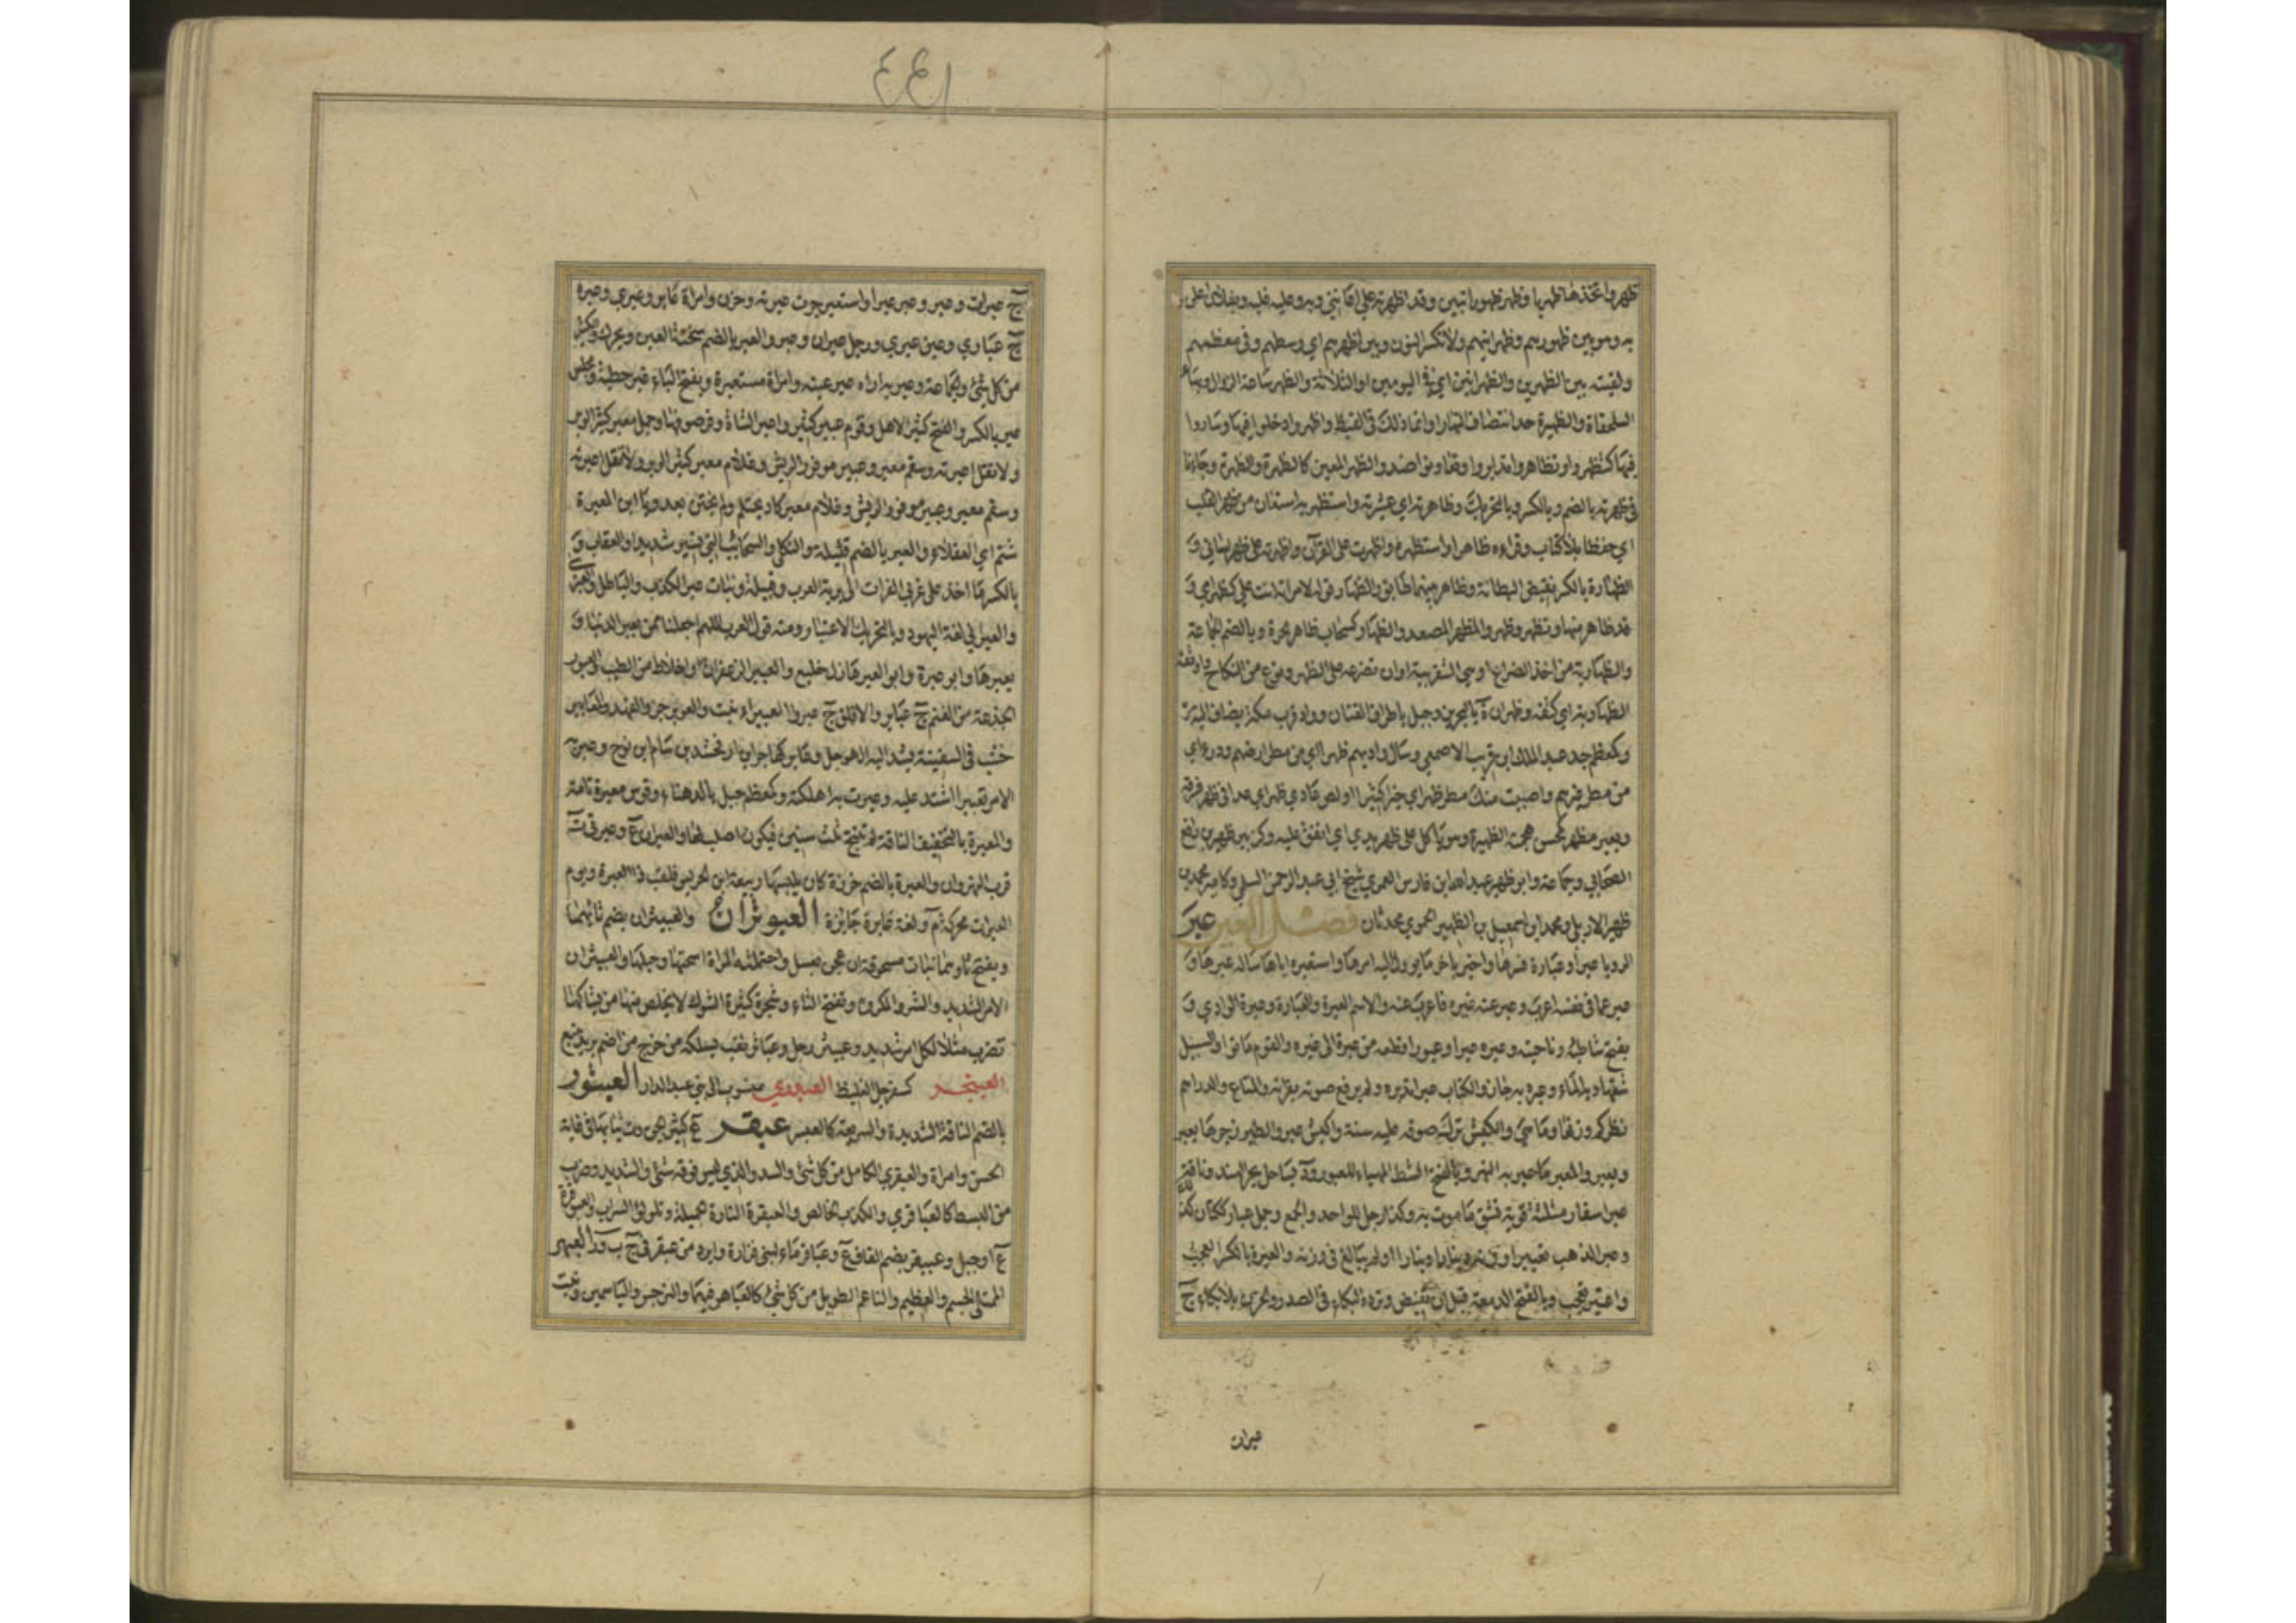 ظهر واتخذها ظهريا وظهر ظهورا تبين وقد اظهرته علي اعانني وبه وعليه غلبه وبفلان اعلن
به وهو بين ظهورهم وظهرانيهم ولا تكسر النون وبين اظهرهم اي وسطهم وفي معظمهم
ولقيته بين الظهرين والظهرانين اي في اليومين او الثلاثة والظهر ساعة الزوال وبهاء
السلحفاة والظهيرة حد انتصاف النهار او انما ذلك في القيظ واظهروا دخلوا فيها وساروا
فيها كتظهروا وتظاهروا تدابروا وتعاونوا ضد والظهير المعين كالظهرة والظهرة وجاءنا
في ظهرته بالضم وبالكسر وبالتحريك وظاهرته اي عشيرته واستظهر به استعان من ظهر القلب
اي حفظا بلا كتاب وقراءه ظاهرا واستظهره واظهرت على القرآن واظهرته على ظهر لساني و
الظهارة بالكسر نقيض البطانة وظاهر بينهما طابق والظهار قوله لامراته انت علي كظهر امي و
قد ظاهر منها وتظهر وظهر والمظهر المصعد والظهار كسحاب ظاهر الحرة وبالضم الجماعة
والظهارية من اخذ الصراع او هي الشغزبية او ان تصرعه على الظهر ونوع من النكاح واوثقه
الظهارية اي كتفه وظهران ة بالبحرين وجبل باطراف القنان وواد قرب مكة يضاف اليه مر
وكمعظم جد عبد الملك ابن قريب الاصمعي وسال واديهم ظهرا اي من مطر ارضهم ودرءا اي
من مطر غيرهم واصبت منك مطر ظهر اي خيرا كثيرا ولص عادي ظهر اي عدا في ظهر فسرقه
وبعير مظهر كمحسن هجمته الظهيرة وهو ياكل على ظهر يدي اي انفق عليه وكزبير ظهير بن رافع
الصحابي وجماعة وابو ظهير عبد الله ابن فارس العمري شيخ ابي عبد الرحمن السلمي وكامير محمد بن
ظهير الاربلي ومحمد ابن اسمعيل بن الظهير الحموي محدثان فصل العين عبر
الرويا عبرا وعبارة فسرها واخبر باخر ما يوول اليه امرها واستعبره اياها ساله عبرها و
عبر عما في نفسه اعرب وعبر عنه غيره فاعرب عنه والاسم العبرة والعبارة وعبرة الوادي و
يفتح شاطئه وناحيته وعبره عبرا وعبورا قطعه من عبره الى عبره والقوم ماتوا والسبيل
شقها وبه الماء وعبره به جاز والكتاب عبرا تدبره ولم يرفع صوته بقراءته والمتاع والدراهم
نظر كم وزنها وما هي والكبش ترك صوفه عليه سنة واكبش عبر والطير زجرها يعبر
ويعبر والمعبر ما عبر به النهر وبالفتح الشط المهياء للعبور ود بساحل بحر الهند وناقة
عبر اسفار مثلثة قوية تشق ما مرت به وكذا رجل للواحد والجمع وجمل عبار ككتان كذلك
وعبر الذهب تعبيرا وزنه دينارا دينارا او لم يبالغ في وزنه والعبرة بالكسر العجب
واعتبر تعجب وبالفتح الدمعة قبل ان تفيض او تردد البكاء في الصدر والحزن بلا بكاء ج
عبرات
٤٤١
ج عبرات وعبر وعبر عبرا واستعبر جرت عبرته وحزن وامراة عابر وعبرى وعبرة
ج عبارى وعين عبرى ورجل عبران وعبر والعبر بالضم سخنة العين ويحرك والكثير
من كل شئ والجماعة وعبر به اراه عبر عينه وامراة مستعبرة وبفتح الباء غير حظية ومجلس
عبر بالكسر والفتح كثير الاهل وقوم عبير كثير واعبر الشاة وفر صوفها وجمل معبر كثير الوبر
ولا تقل اعبرته وسهم معبر وعبير موفور الريش وغلام معبر كثير الوبر ولا تقل اعبرته
وسهم معبر وعبير موفور الريش وغلام معبر كاد يحتلم ولم يختن بعد ويا ابن المعبرة
شتم اي العفلاء والعبر بالضم قبيلة والثكلى والسحائب التي تسير شديدا والعقاب و
بالكسر ما اخذ على غربي الفرات الى برية العرب وقبيلة وبنات عبر الكذب والباطل والعبري
والعبراني لغة اليهود وبالتحريك الاعتبار ومنه قول العرب اللهم اجعلنا ممن يعبر الدنيا و
يعبرها وابو عبرة وابو العبر هازل خليع والعبير الزعفران او اخلاط من الطيب والعبور
الجذعة من الغنم ج عبائر والاقلف ج عبر والعبيراء نبت والعوبر جرو الفهد والمعابير
خشب في السفينة يشد اليه الهوجل وعابر كهاجر ابن ارفخشد بن سام ابن نوح وعبر به
الامر تعبيرا اشتد عليه وعبرت به اهلكته وكمعظم جبل بالدهناء وقوس معبرة تامة
والمعبرة بالتخفيف الناقة لم تنتج ثلث سنين فيكون اصلب لها والعبران ع وعبرتى ة
قرب النهروان والعبرة بالضم خرزة كان يلبسها ربيعة ابن الحريش فلقب ذا العبرة ويوم
العبرات محركة م ولغة عابرة جائزة العبوثران والعبيثران بضم ثائهما
ويفتح ثاوهما نبات مسحوقه ان عجن بعسل واحتملته المراة اسخنها وحبلها والعبيثران
الامر الشديد والشر والمكروه وتفتح الثاء وشجرة كثيرة الشوك لا يخلص منها من يشاكها
تضرب مثلا لكل امر شديد وعبيثر رجل وعباثر نقب يسلكه من خرج من اضم يريد ينبع
العبنجر كسفرجل الغليظ العبدري منسوب الى بني عبد الدار العبسور
بالضم الناقة الشديدة والسريعة كالعبسر عبقر ع كثير الجن وة ثيابها في غاية
الحسن وامراة والعبقري الكامل من كل شئ والسيد والذي ليس فوقه شئ والشديد وضرب
من البسط كالعباقري والكذب الخالص والعبقرة التارة الجميلة وتلالؤ السراب والعبوقرة
ع او جبل وعبيقر بضم القاف ع وعباقر ماء لبني فزارة وابرد من عبقر في ح ب د العبهر
الممتلئ الجسم والعظيم والناعم الطويل من كل شئ كالعباهر فيهما والنرجس والياسمين ونبت